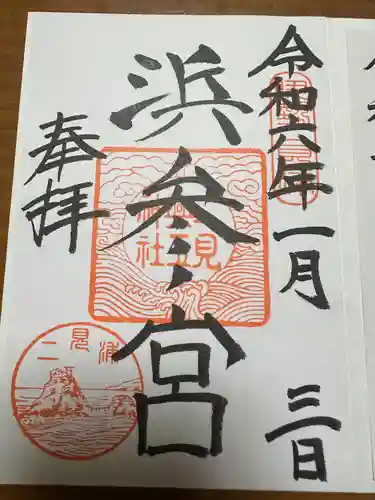 令和六年一月三日
浜参宮
奉拝
二見浦